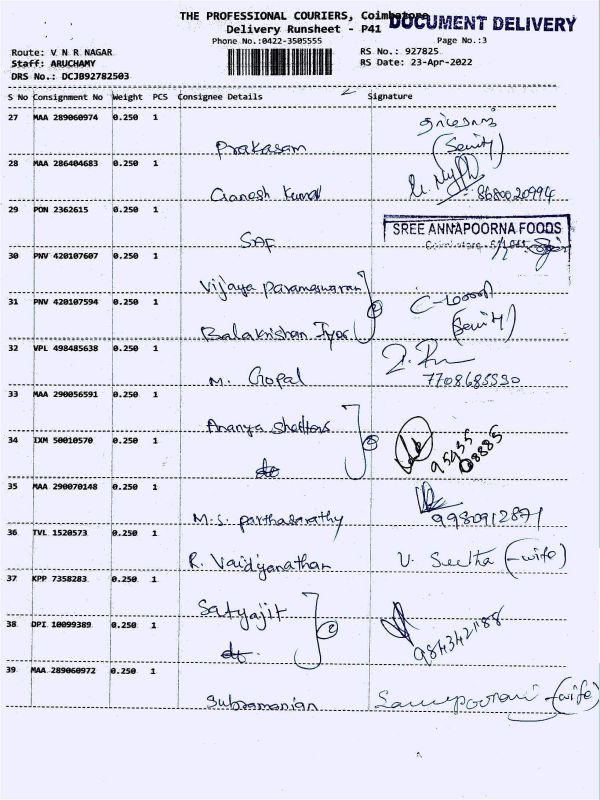 THE PROFESSIONAL COURIERS, Coimbatore
DOCUMENT DELIVERY
Delivery Runsheet - P41
Phone No.:0422-3505555
Page No.:3
Route: V N R NAGAR
RS No.: 927825
Staff: ARUCHAMY
RS Date: 23-Apr-2022
DRS No.: DCJB92782503
S No Consignment No Weight PCS Consignee Details Signature
27 MAA 289060974 0.250 1
Prakasam (Seuity)
28 MAA 286404683 0.250 1
Ganesh Kumar 8680020994
29 PON 2362615 0.250 1
SAF
SREE ANNAPOORNA FOODS
Coimbatore
30 PNV 420107607 0.250 1
Vijaya Parameswaran
31 PNV 420107594 0.250 1
2
Balakrishan Iyer (Seuity)
32 VPL 498485638 0.250 1
M. Gopal 7708685530
33 MAA 290056591 0.250 1
Ananya Shelters
34 IXM 50010570 0.250 1
2
do
95955
08885
35 MAA 290070148 0.250 1
M.S. Parthasarathy 9980912871
36 TVL 1520573 0.250 1
R. Vaidyanathan V. Seetha (-wife)
37 KPP 7358283 0.250 1
Satyajit
38 DPI 10099389 0.250 1
2
do 984342188
39 MAA 289060972 0.250 1
Subramanian Sampoorani -(wife)